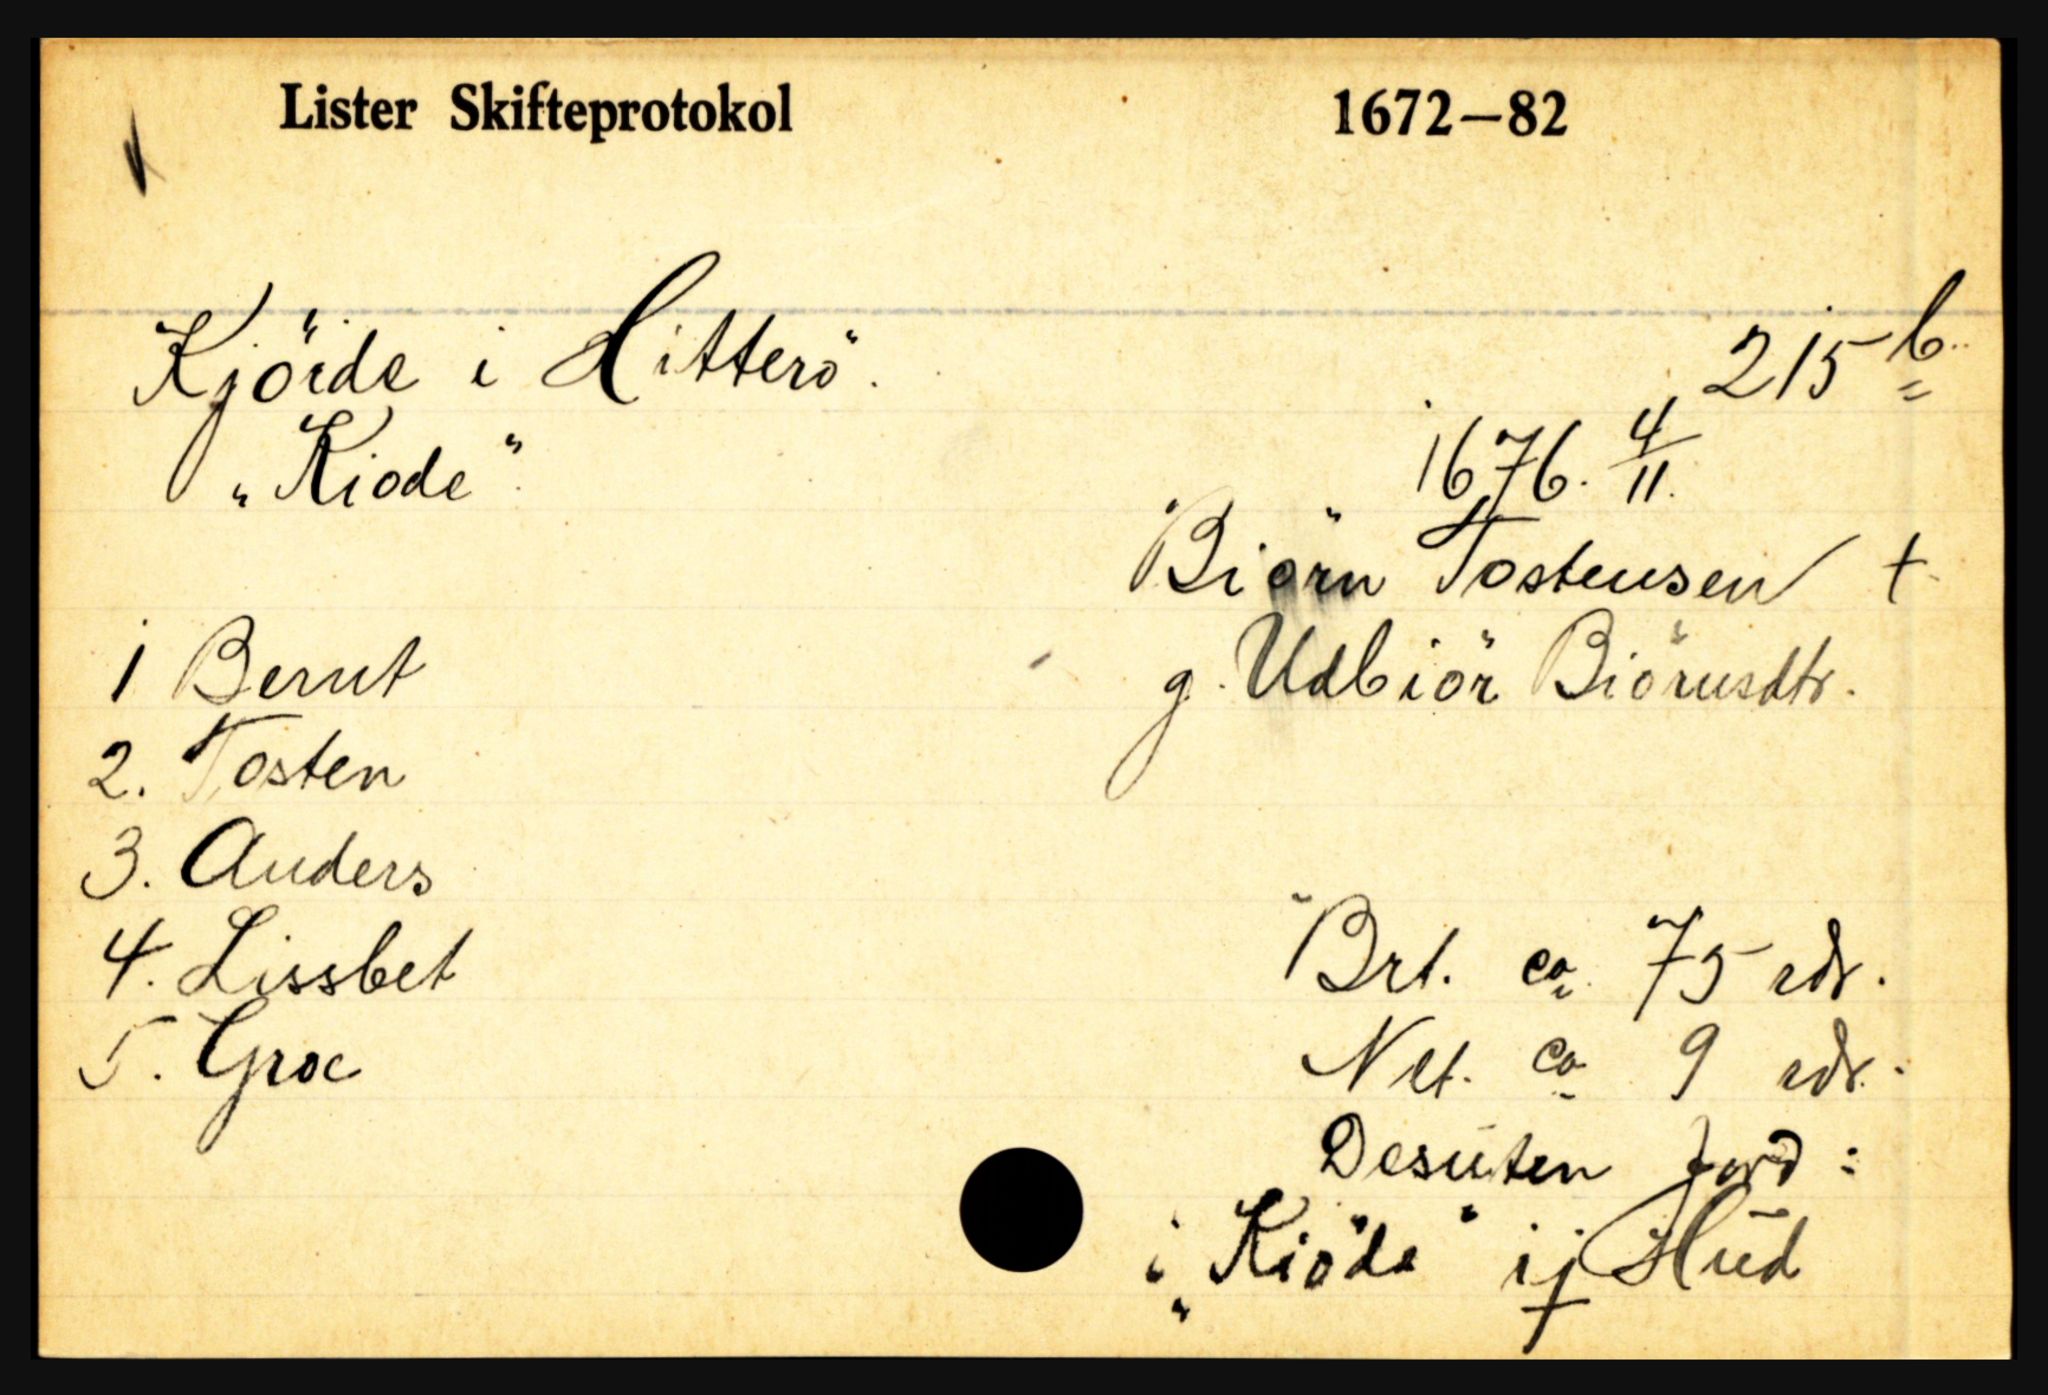 Lister Skifteprotokol 1672–82
Kjörde i Hitterö.
215 b.
"Kiode".
1676. 4/11.
Biörn Tostensen +
g. Udbiör Biörnsdtr.
1 Bernt
2. Tosten
3. Anders
4. Lissbet
5. Groe
Brt. ca. 75 rdr.
Net. ca 9 rdr.
Desuten Jord:
i "Kiöde" ij Hud